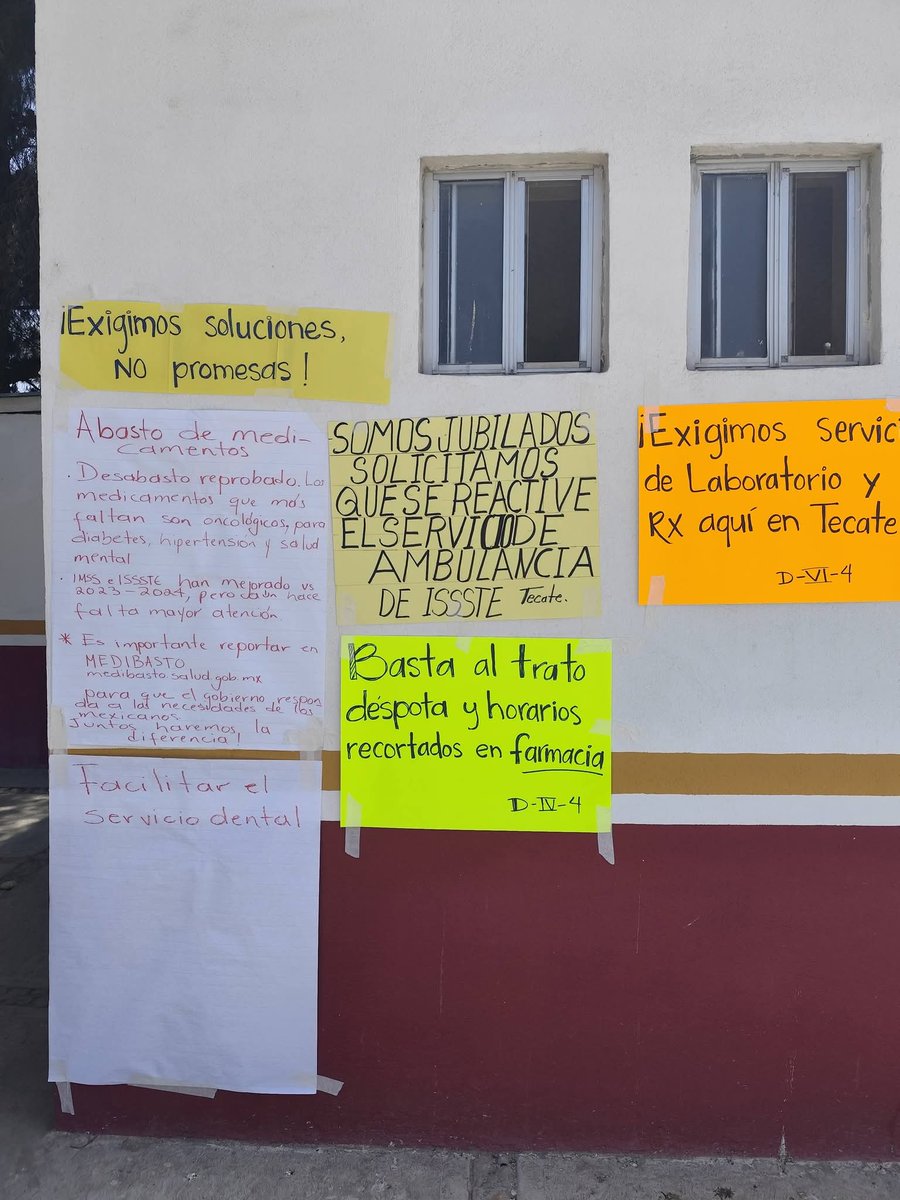 ¡Exigimos soluciones,
NO promesas!
Abasto de medi-
camentos
· Desabasto reprobado. Los
medicamentos que más
faltan son oncológicos, para
diabetes, hipertensión y salud
mental
· IMSS e ISSSTE han mejorado vs
2023-2024, pero aún hace
falta mayor atención
* Es importante reportar en
MEDIBASTO
medibasto.salud.gob.mx
para que el gobierno respon
da a las necesidades de los
mexicanos.
Juntos haremos la
diferencia!
Facilitar el
servicio dental
SOMOS JUBILADOS
SOLICITAMOS
QUE SE REACTIVE
EL SERVICIO DE
AMBULANCIA
DE ISSSTE Tecate.
Basta al trato
déspota y horarios
recortados en farmacia
D-IV-4
¡Exigimos Servici
de Laboratorio y
Rx aquí en Tecate
D-VI-4